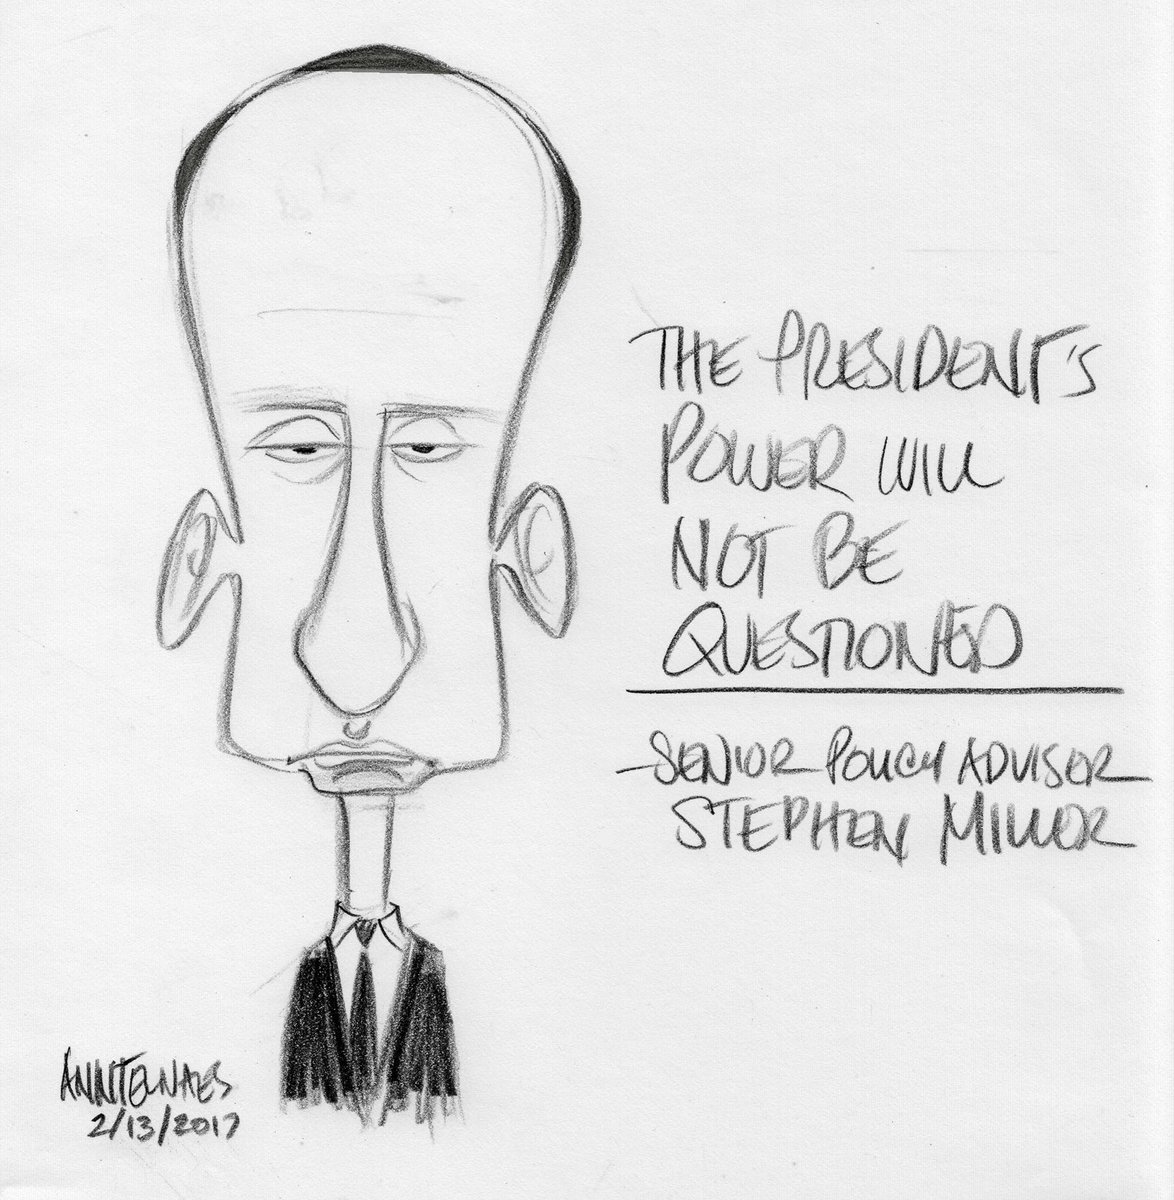 THE PRESIDENT'S
POWER WILL
NOT BE
QUESTIONED
-SENIOR POLICY ADVISOR
STEPHEN MILLOR
ANN TELNAES
2/13/2017